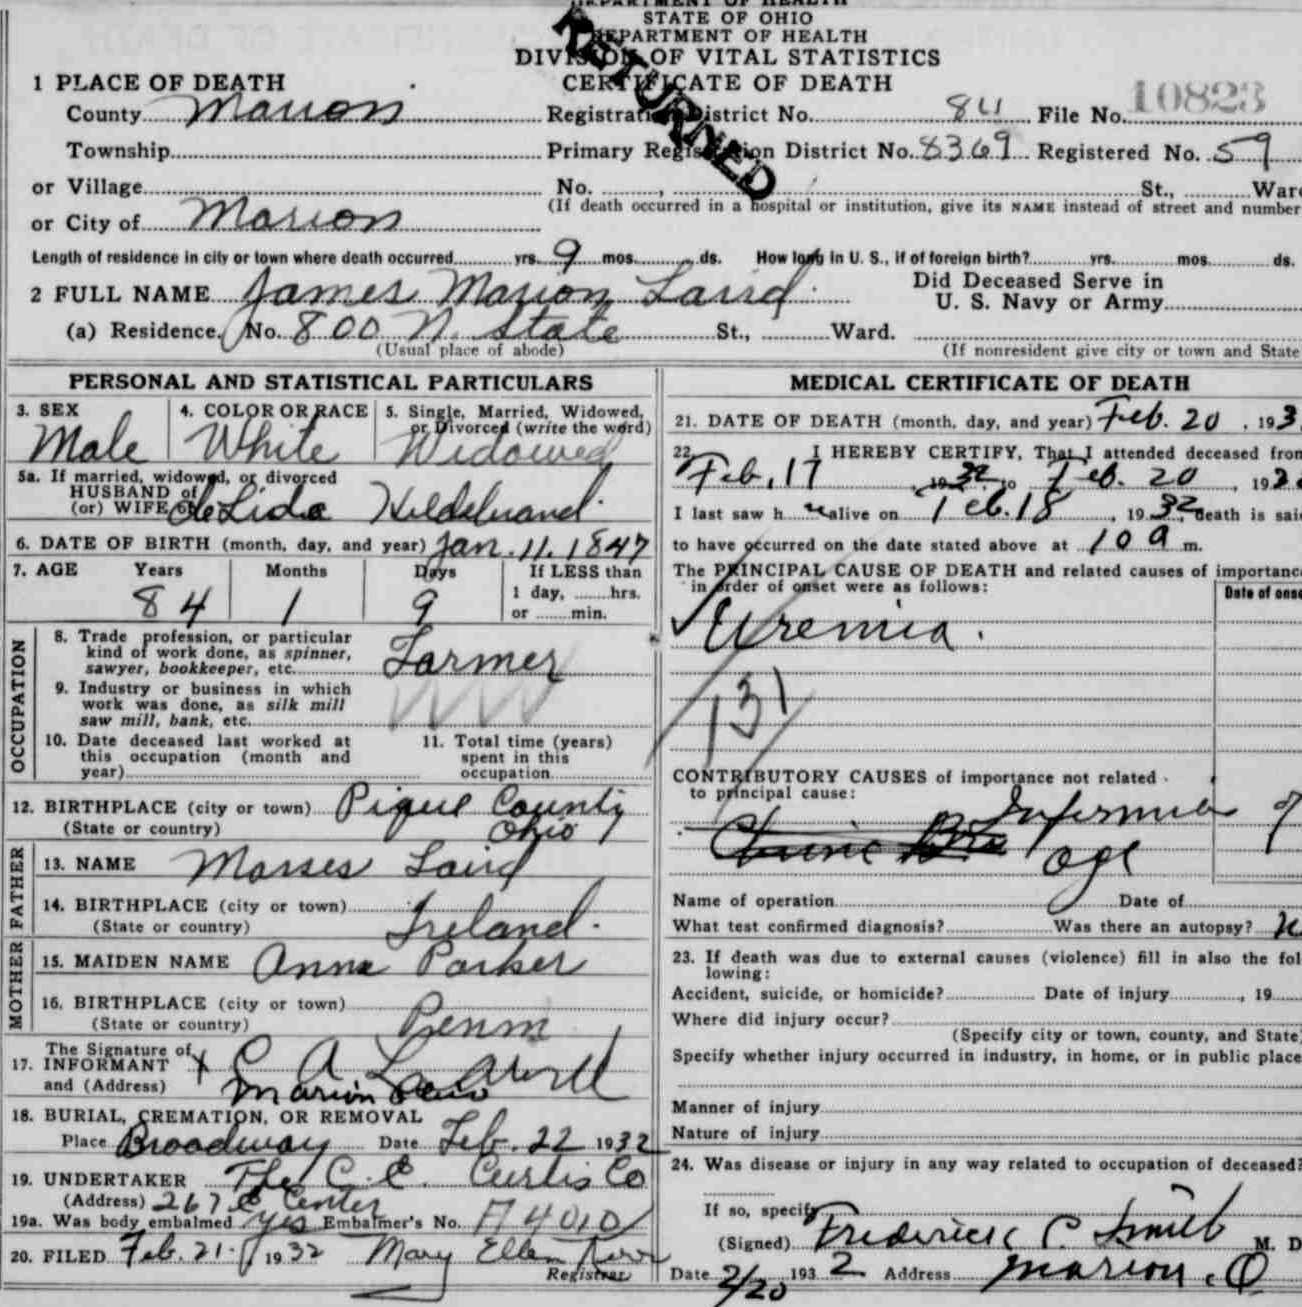 DEPARTMENT OF HEALTH
STATE OF OHIO
DEPARTMENT OF HEALTH
DIVISION OF VITAL STATISTICS
CERTIFICATE OF DEATH
RETURNED
1 PLACE OF DEATH
County Marion Registration District No. 841 File No. 10823
Township Primary Registration District No. 8369 Registered No. 59
or Village No. , St., Ward
(If death occurred in a hospital or institution, give its NAME instead of street and number
or City of Marion
Length of residence in city or town where death occurred yrs. 9 mos. ds. How long in U. S., if of foreign birth? yrs. mos. ds.
2 FULL NAME James Marion Laird Did Deceased Serve in U. S. Navy or Army
(a) Residence. No. 800 N. State St., Ward.
(Usual place of abode) (If nonresident give city or town and State
PERSONAL AND STATISTICAL PARTICULARS
3. SEX Male
4. COLOR OR RACE White
5. Single, Married, Widowed, or Divorced (write the word) Widowed
5a. If married, widowed, or divorced
HUSBAND of
(or) WIFE of Hildebrand
6. DATE OF BIRTH (month, day, and year) Jan. 11. 1847
7. AGE Years Months Days If LESS than
1 day, hrs.
or min.
84 1 9
OCCUPATION
8. Trade profession, or particular
kind of work done, as spinner,
sawyer, bookkeeper, etc. Farmer
9. Industry or business in which
work was done, as silk mill
saw mill, bank, etc.
10. Date deceased last worked at
this occupation (month and
year)
11. Total time (years)
spent in this
occupation
12. BIRTHPLACE (city or town) County
(State or country) Ohio
FATHER
13. NAME Laird
14. BIRTHPLACE (city or town)
(State or country) Ireland.
MOTHER
15. MAIDEN NAME Anna Parker
16. BIRTHPLACE (city or town)
(State or country) Penn
17. The Signature of
INFORMANT X C A
and (Address) Marion Ohio
18. BURIAL, CREMATION, OR REMOVAL
Place Broadway Date Feb. 22 1932
19. UNDERTAKER The C. E. Curtis Co
(Address) 267 E Center
19a. Was body embalmed yes Embalmer's No. A 4010
20. FILED Feb. 21. 1932 Mary Ellen
Registrar
MEDICAL CERTIFICATE OF DEATH
21. DATE OF DEATH (month, day, and year) Feb. 20 , 193
22. I HEREBY CERTIFY, That I attended deceased from
Feb. 17 , 1932 to Feb. 20 , 193
I last saw h alive on Feb. 18 , 1932, death is said
to have occurred on the date stated above at 10 a m.
The PRINCIPAL CAUSE OF DEATH and related causes of importance
in order of onset were as follows:
Date of onset
Uremia.
131
CONTRIBUTORY CAUSES of importance not related
to principal cause:
of
age
Name of operation Date of
What test confirmed diagnosis? Was there an autopsy?
23. If death was due to external causes (violence) fill in also the fol
lowing:
Accident, suicide, or homicide? Date of injury , 19
Where did injury occur?
(Specify city or town, county, and State)
Specify whether injury occurred in industry, in home, or in public place
Manner of injury
Nature of injury
24. Was disease or injury in any way related to occupation of deceased?
If so, specify
(Signed) Frederick C. Smith M. D
Date 2/20 1932 Address Marion, O